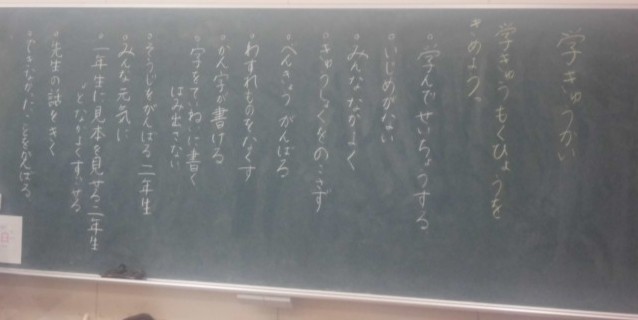 学きゅうかい
学きゅうもくひょうを
きめよう。
。学んでせいちょうする
。いじめがない
。みんななかよく
。きゅうしょくをのこさず
。べんきょうがんばる
。わすれものをなくす
。かん字が書ける
。字をていねいに書く
はみ出さない
。そうじをがんばる二年生
。みんな元気に
。一年生に見本を見せる二年生
となかよくすごせる
。先生の話をきく
。できなかったことをがんばる